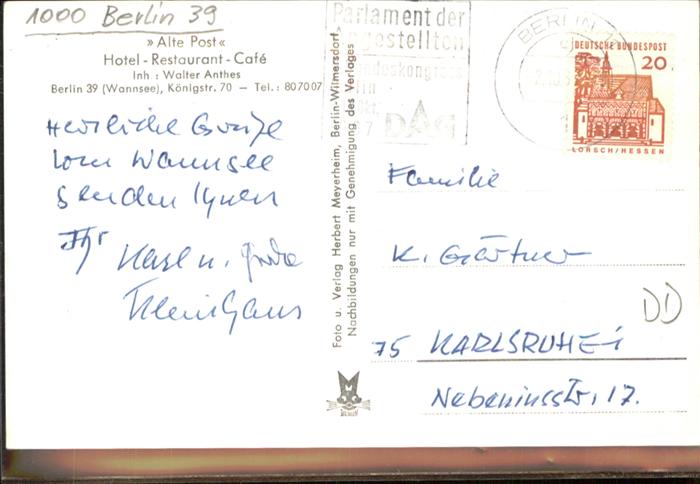 1000 Berlin 39
»Alte Post«
Hotel-Restaurant-Café
Inh: Walter Anthes
Berlin 39 (Wannsee), Königstr. 70 — Tel.: 80 70 07
Herzliche Grüße
vom Wannsee
senden Ihnen
Ihr Karl u.
Foto u. Verlag Herbert Meyerheim, Berlin-Wilmersdorf
Nachbildungen nur mit Genehmigung des Verlages
Parlament der
Angestellten
Bundeskongress
DAG
BERLIN
DEUTSCHE BUNDESPOST
20
LORSCH/HESSEN
Familie
K. Gärtner
DD
75 KARLSRUHE-1
Nebeniusstr. 17.